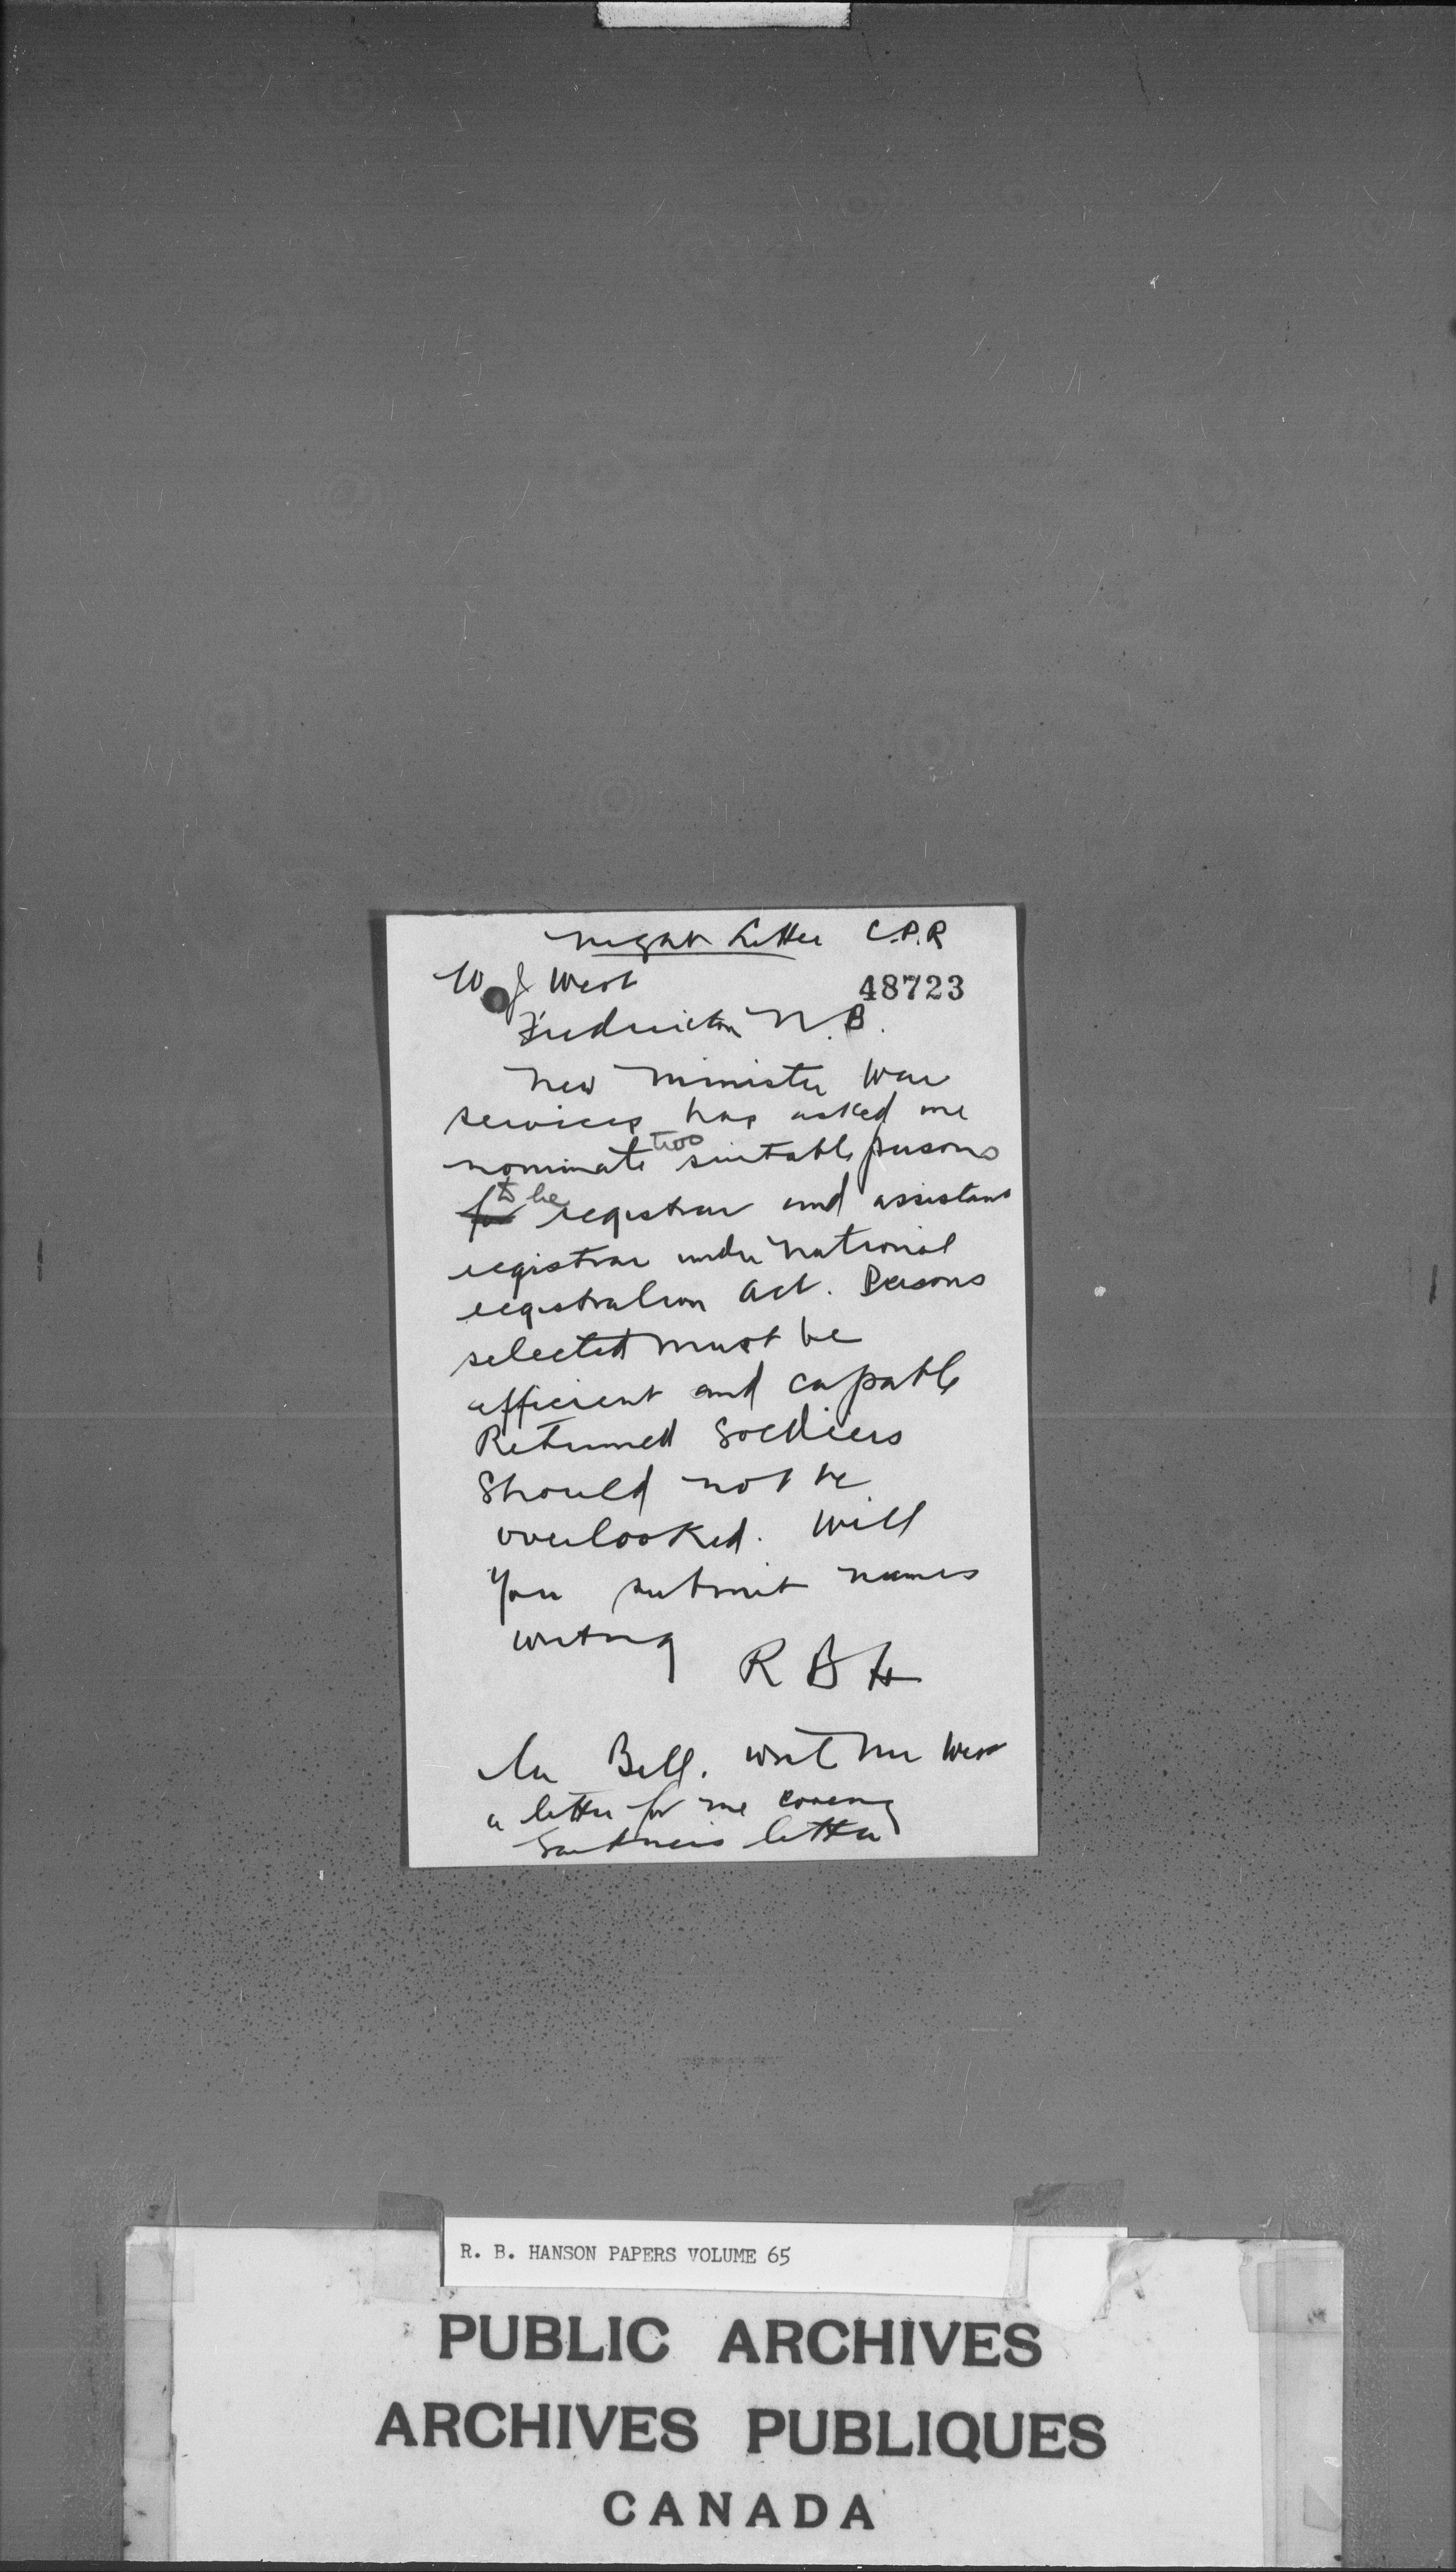 Night Letter C.P.R
W J West
48723
Fredericton N.B.
New Minister War
services has asked me
nominate two suitable persons
for to be registrar and assistant
registrar under National
registration Act. Persons
selected must be
efficient and capable
Returned Soldiers
Should not be
overlooked. Will
you submit names
writing
R B H
Mr Bell. Write Mr West
a letter for me covering
letter
R. B. HANSON PAPERS VOLUME 65
PUBLIC ARCHIVES
ARCHIVES PUBLIQUES
CANADA